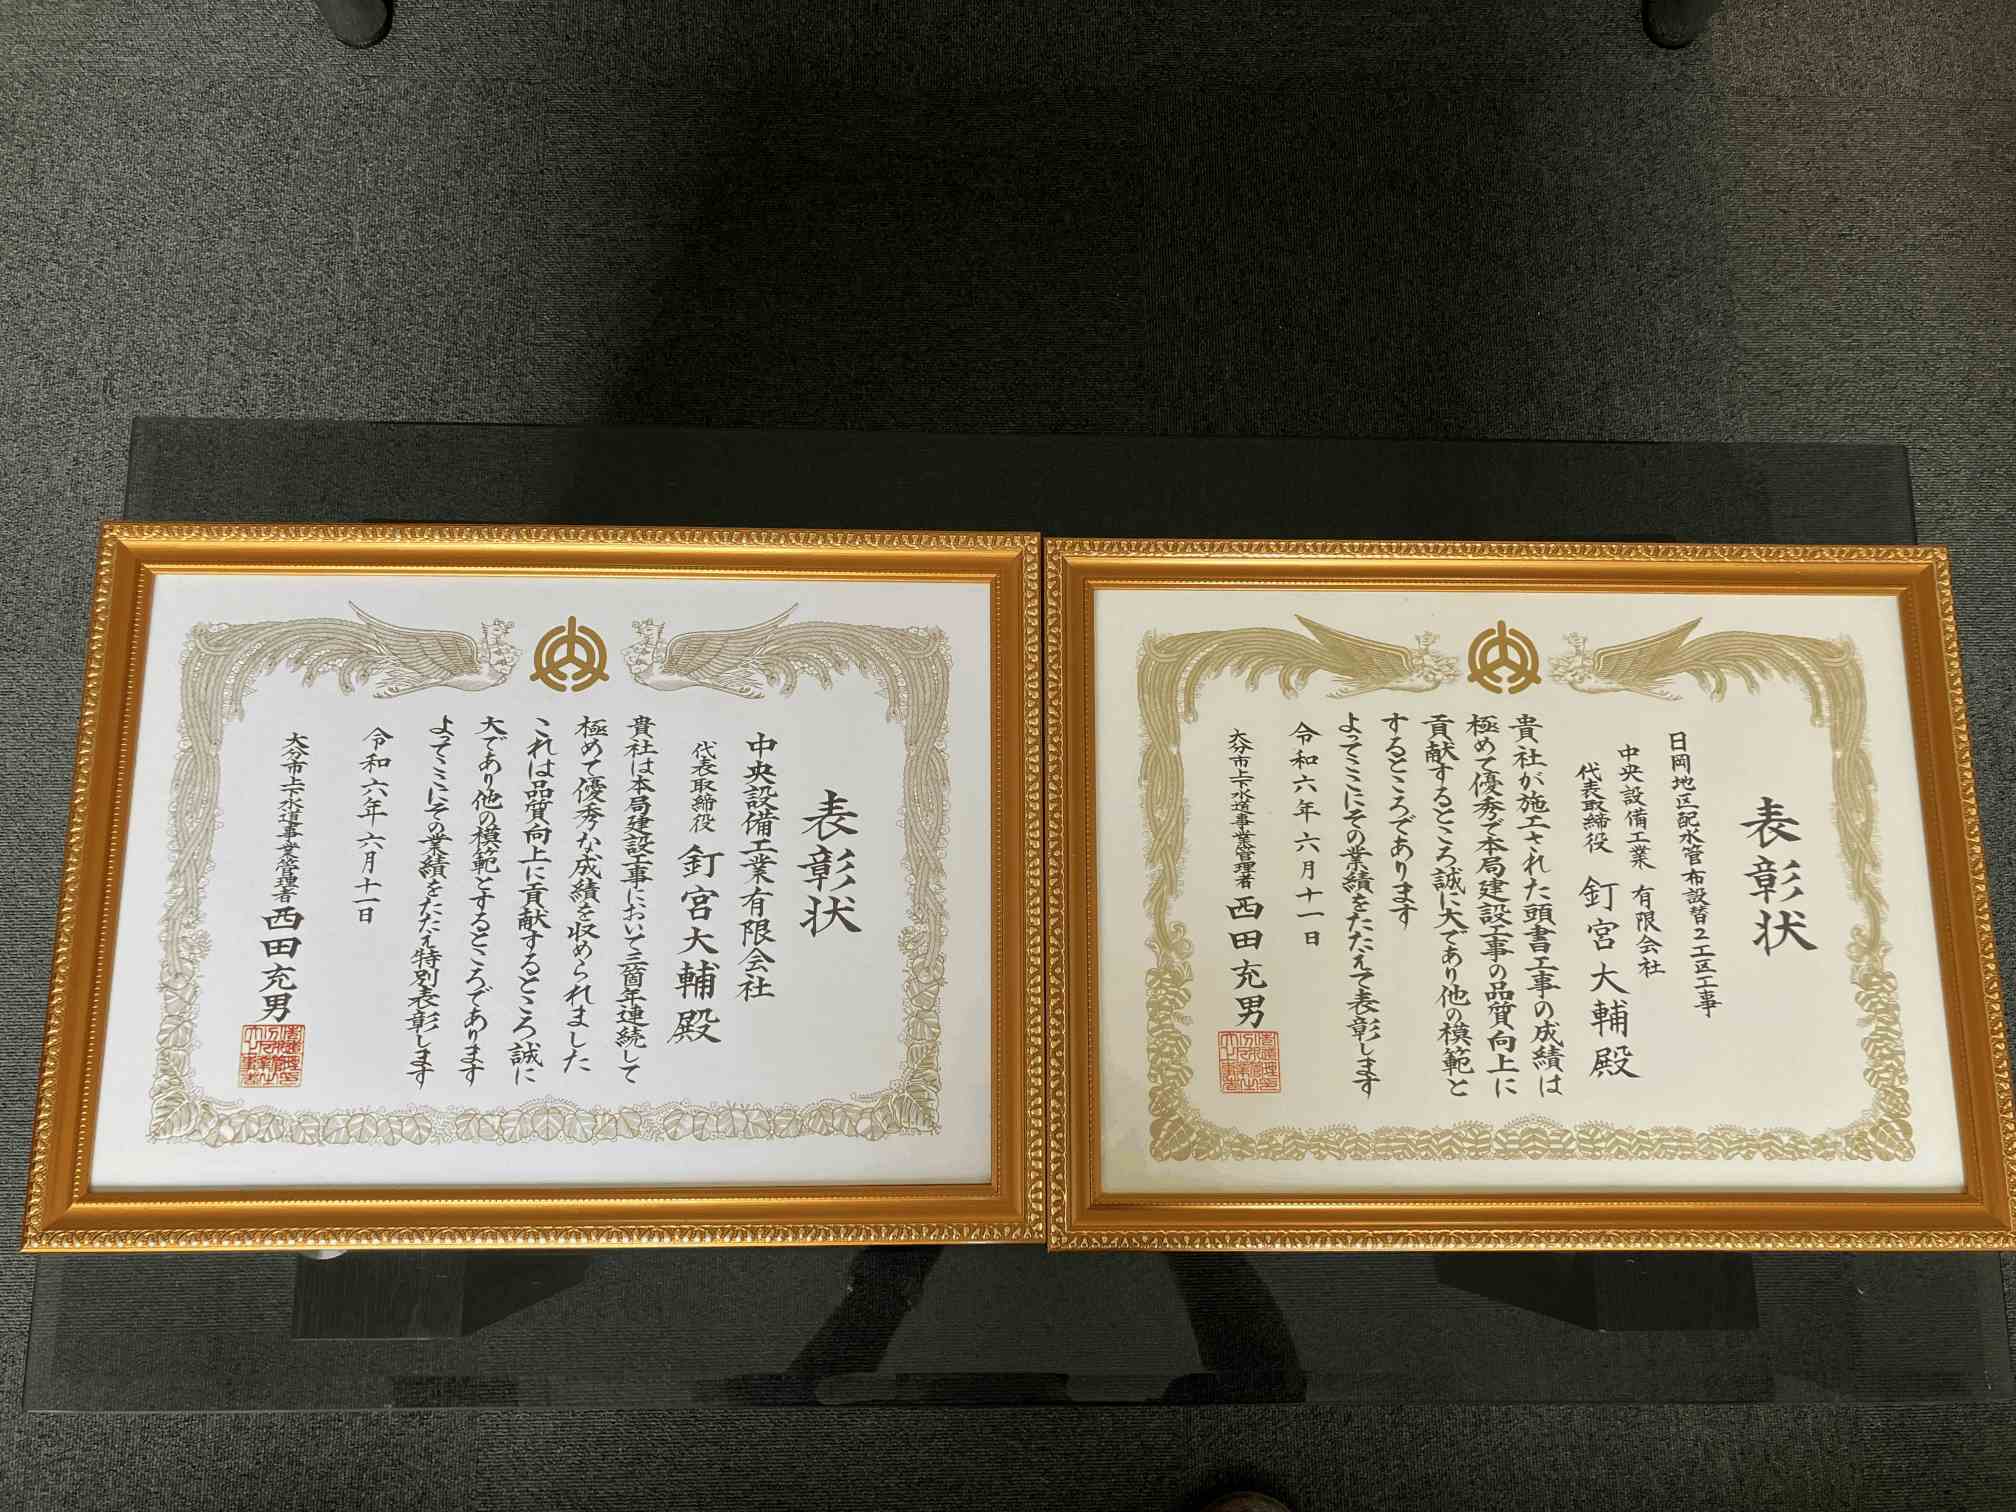 表彰状
中央設備工業有限会社
代表取締役 釘宮大輔殿
貴社は本局建設工事において三箇年連続して
極めて優秀な成績を収められました
これは品質向上に貢献するところ誠に
大であり他の模範とするところであります
よってここにその業績をたたえ特別表彰します
令和六年六月十一日
大分市上下水道事業管理者 西田充男
表彰状
日岡地区配水管布設替2工区工事
中央設備工業 有限会社
代表取締役 釘宮大輔殿
貴社が施工された頭書工事の成績は
極めて優秀で本局建設工事の品質向上に
貢献するところ誠に大であり他の模範と
するところであります
よってここにその業績をたたえて表彰します
令和六年六月十一日
大分市上下水道事業管理者 西田充男